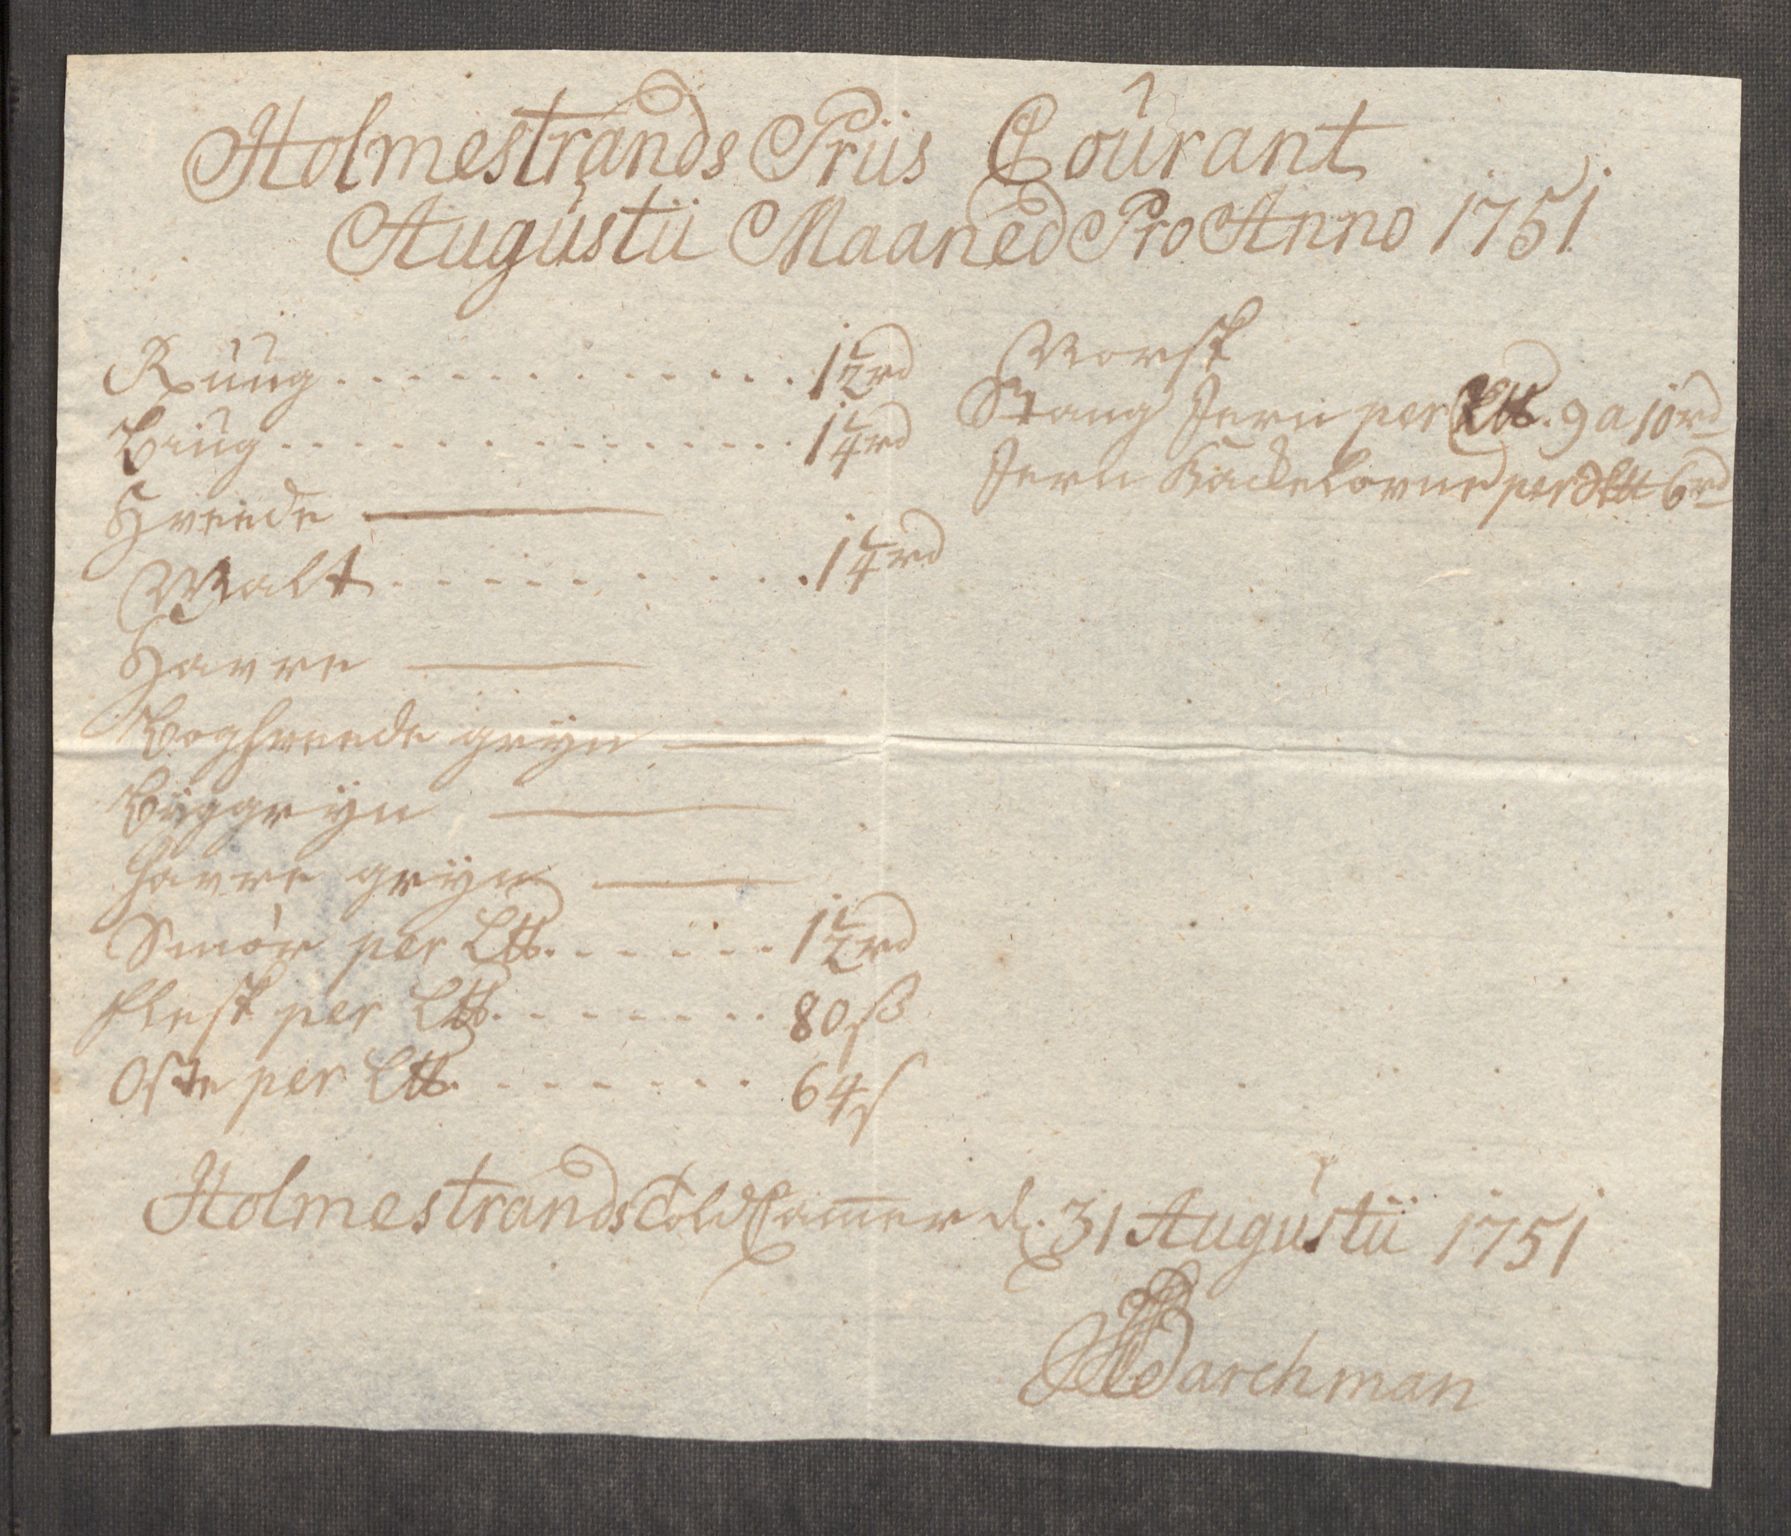 Holmestrands Priis Courant
Augustii Maaned Pro Anno 1751
Ruug . . . . . . . . . . . . . 1 1/2 rd
Biug . . . . . . . . . . . . . 1 1/4 rd
Hveede ———
Malt . . . . . . . . . . 1 1/4 rd
Havre ———
Boghveede gryn ———
Byggryn ———
Havre gryn ———
Smør per L℔ . . . . . . 1 1/2 rd
Flesk per L℔ . . . . . . . 80 ß
Oste per L℔ . . . . . . . 64 ß
Norsk
Stang Jern per S℔. 9 a 10 rd
Jern Kackelovne per S℔ 6 rd
Holmestrands Told Camer d. 31 Augustii 1751
Barchman